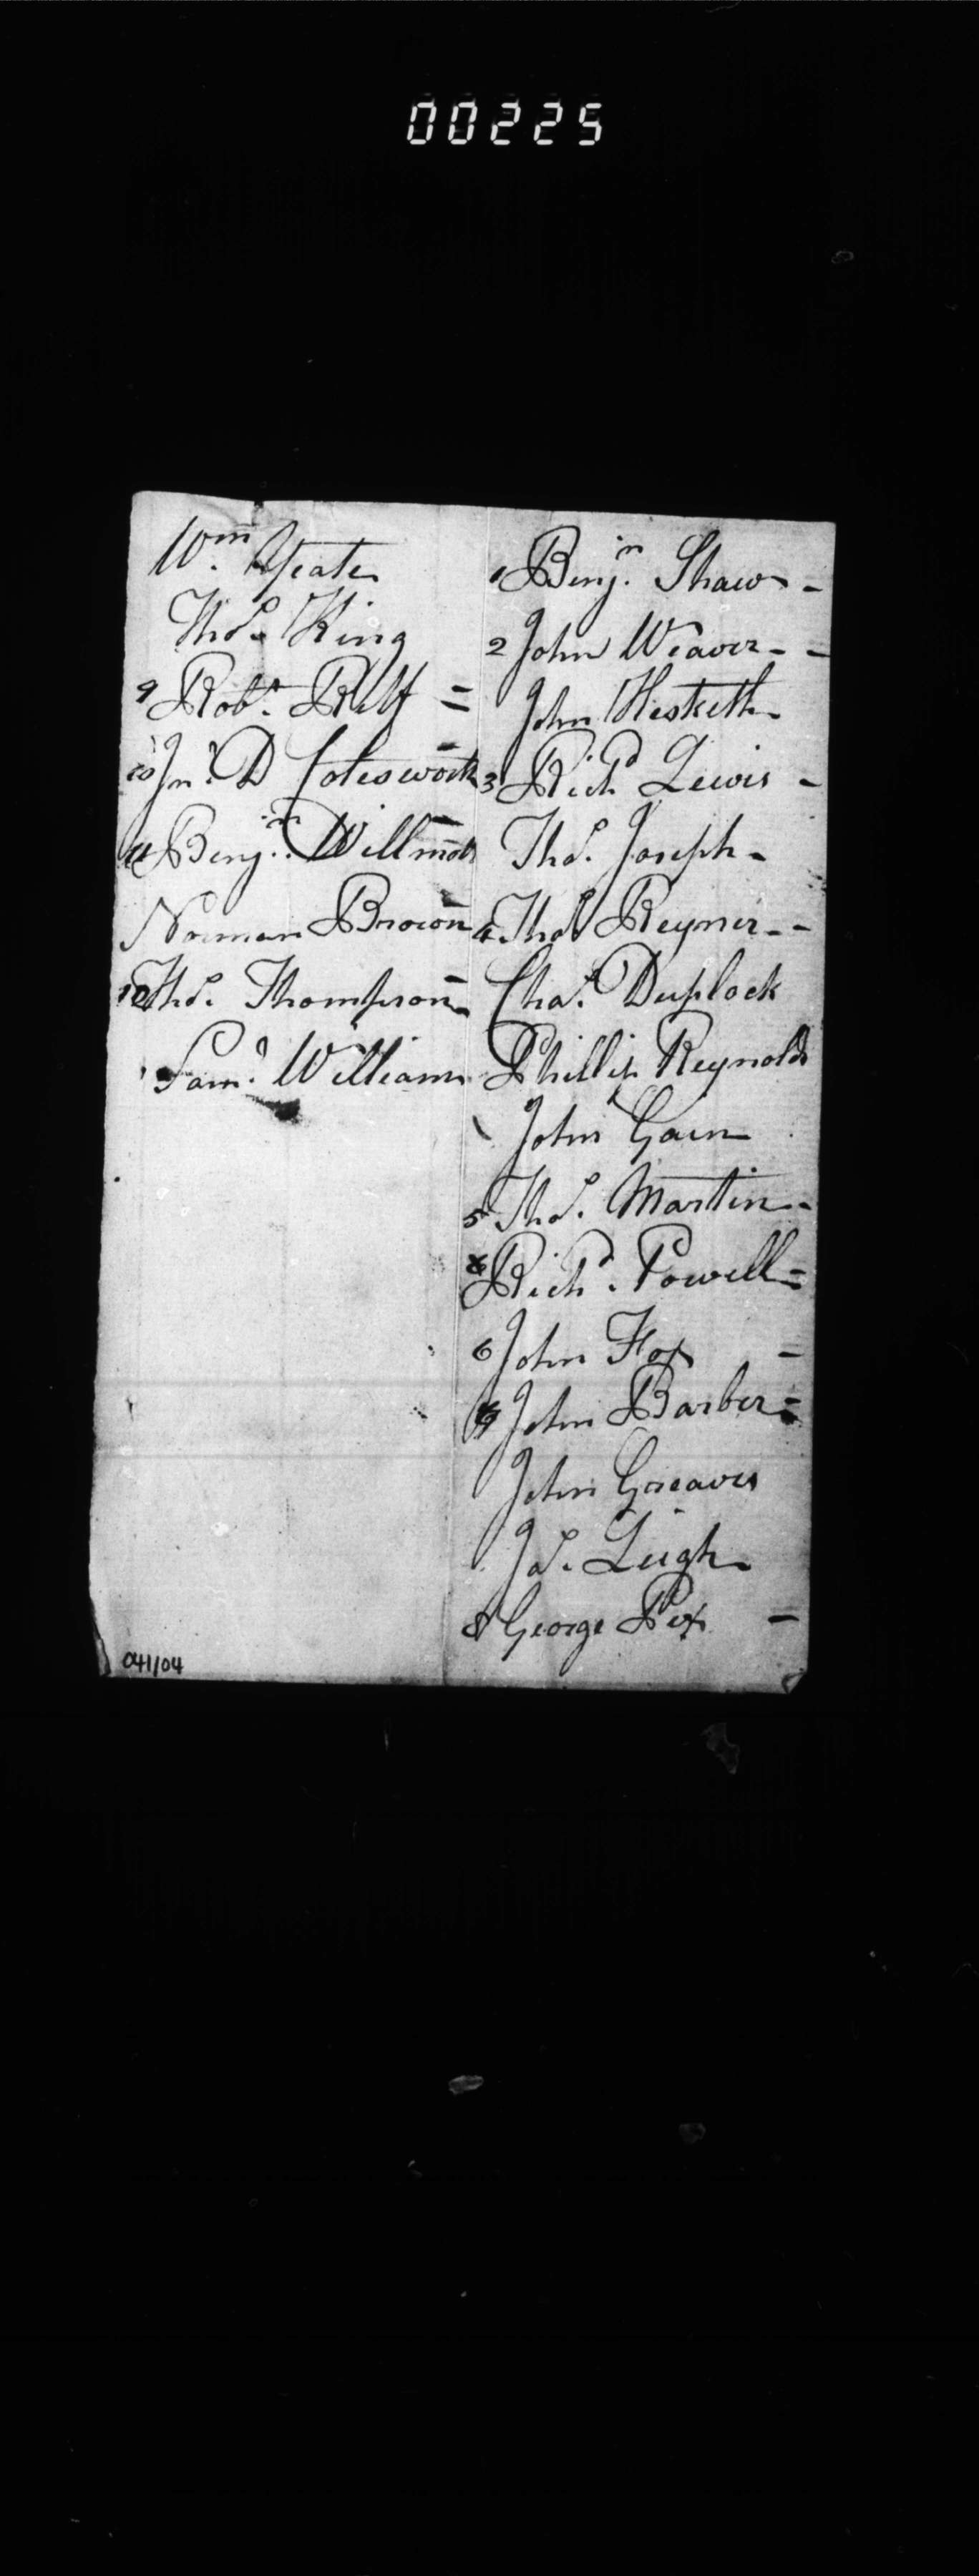 00225
Wm. Yeates
Thos. King
9 Robt. Relf =
10 Jno. D Colesworth
11 Benjn. Willmott
Norman Brown
12 Thos. Thompson
Saml. Williams
1 Benjn. Shaw -
2 John Weaver - -
John Hesketh
3 Richd Lewis -
Thos. Joseph -
4 Thos Reyner - -
Chas. Duplock
Phillip Reynolds
John Gain
5 Thos. Martin -
Richd. Powell =
6 John Fox -
7 John Barber =
John Greaves
Js. Leigh
8 George Pex -
041/04